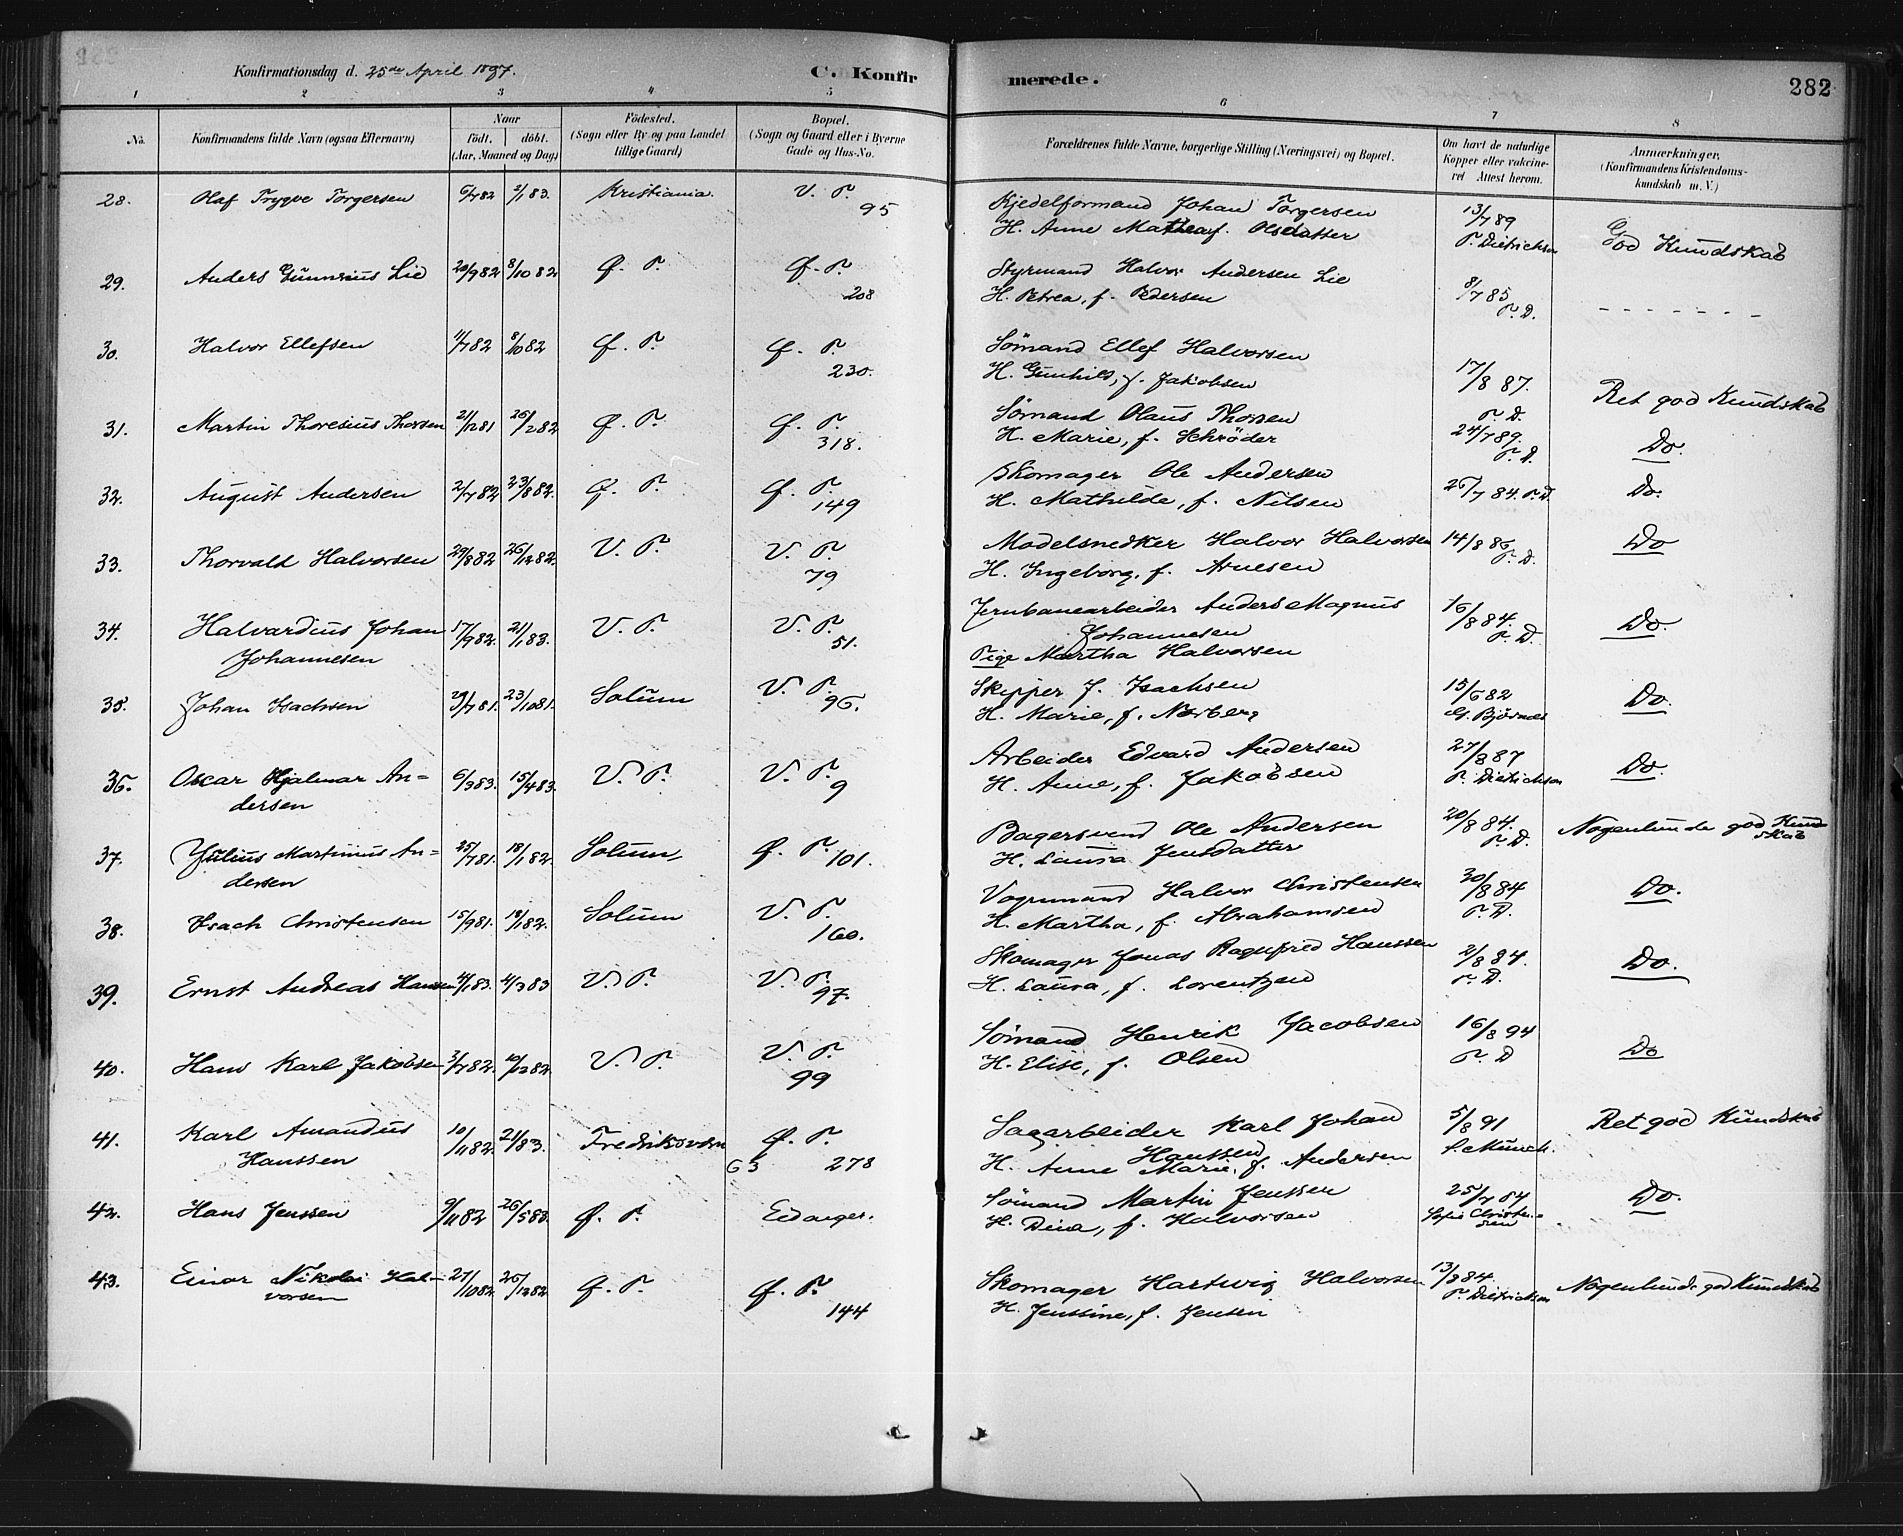 Konfirmationsdag d. 25de April 1897.
C. Konfirmerede.
282
1 2 3 4 5 6 7 8
No.
Konfirmandens fulde Navn (ogsaa Efternavn)
Naar
født. døbt.
(Aar, Maaned og Dag)
Fødested.
(Sogn eller By og paa Landet
tillige Gaard)
Bopæl.
(Sogn og Gaard eller i Byerne
Gade og Hus-No.
Forældrenes fulde Navne, borgerlige Stilling (Næringsvei) og Bopæl.
Om havt de naturlige
Kopper eller vakcine-
ret Attest herom.
Anmærkninger.
(Konfirmandens Kristendoms-
kundskab m. V.)
28. Olaf Trygve Torgersen 6/7 82 2/1 83. Kristiania. V. P. 95 Kjedelformand Johan Torgersen 13/7 89
H. Anne Mathea f. Olsdatter P. Dietrichson God Kundskab
29. Anders Gunnerius Lie 20/9 82 8/10 82 Ø. P. Ø. P. 208 Styrmand Halvor Andersen Lie
H. Petrea, f. Pedersen 8/7 85 P. D. - - - - - - -
30. Halvor Ellefsen 11/7 82 8/10 82 Ø. P. Ø. P. 230. Sömand Ellef Halvorsen
H. Gunhild, f. Jakobsen 17/8 87. P. D. Ret god Kundskab
31. Martin Thoresius Thorsen 21/12 81 26/2 82 Ø. P. Ø. P. 318. Sömand Olaus Thorsen
H. Marie, f. Schrøder 24/7 89. P. D. Do.
32. August Andersen 2/7 82 23/8 82. Ø. P. Ø. P. 149 Skomager Ole Andersen
H. Mathilde, f. Nilsen 26/7 84. P. D. Do.
33. Thorvald Halvorsen 29/8 82 26/12 82. V. P. V. P. 79 Modelsnedker Halvor Halvorsen 14/8 86 P. D. Do
H. Ingeborg, f. Arnesen
34. Halvardius Johan 17/9 82. 21/1 83. V. P. V. P. 51. Jernbanearbeider Anders Magnus 16/8 84. P. D. Do.
Johannesen Johannesen
Pige Martha Halvorsen
35. Johan Isachsen 29/7 81. 23/10 81. Solum V. P. 96. Skipper J. Isachsen 15/6 82
H. Marie, f. Norberg G. Bjørnes Do.
36. Oscar Hjalmar An= 6/3 83. 15/4 83. V. P. V. P. 9 Arbeider Edvard Andersen 27/8 87
dersen H. Anne, f. Jakobsen P. Dietrichson Do.
37. Julius Martinius An= 25/7 81. 18/1 82. Solum, Ø. P. 101. Bagersvend Ole Andersen 20/8 84. P. D. Nogenlunde god Kund
dersen H. Laura Jensdatter skab
38. Isach Christensen 15/9 81. 18/1 82. Solum V. P. 160. Vognmand Halvor Christensen 30/8 84
H. Martha, f. Abrahamsen P. D. Do.
39. Ernst Andreas Hanssen 4/1 83. 4/3 83 V. P. V. P. 97. Skomager Jonas Ragnfred Hanssen 2/8 84.
H. Laura, f. Lorentzen P. D. Do.
40. Hans Karl Jakobsen 3/7 82. 10/12 82. V. P. V. P. 99 Sömand Henrik Jacobsen 16/8 94
H. Elise, f. Olsen P. D Do
41. Karl Amandus 10/11 82. 21/ 83. Fredriksværn Ø. P. 63 278 Sagarbeider Karl Johan 5/8 91 Ret god Kundskab
Hanssen Hanssen
H. Anne Marie, f. Andersen S. Münch.
42. Hans Jenssen 9/11 82 26/5 83. Ø. P. Eidanger. Sömand Martin Jenssen 25/7 84 Do.
H. Dina, f. Halvorsen Sofie Christen=
sen
43. Einar Nikolai Hal- 27/10 82 26/12 82 Ø. P. Ø. P. 144 Skomager Hartvig Halvorsen 13/8 84. Nogenlunde god Kundskab
vorsen H. Jenssine, f. Jensen P. Dietrichson